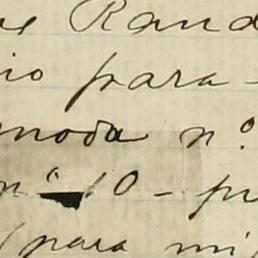 Rand
io para -
moda nº
nº 10 - pr
(para mi